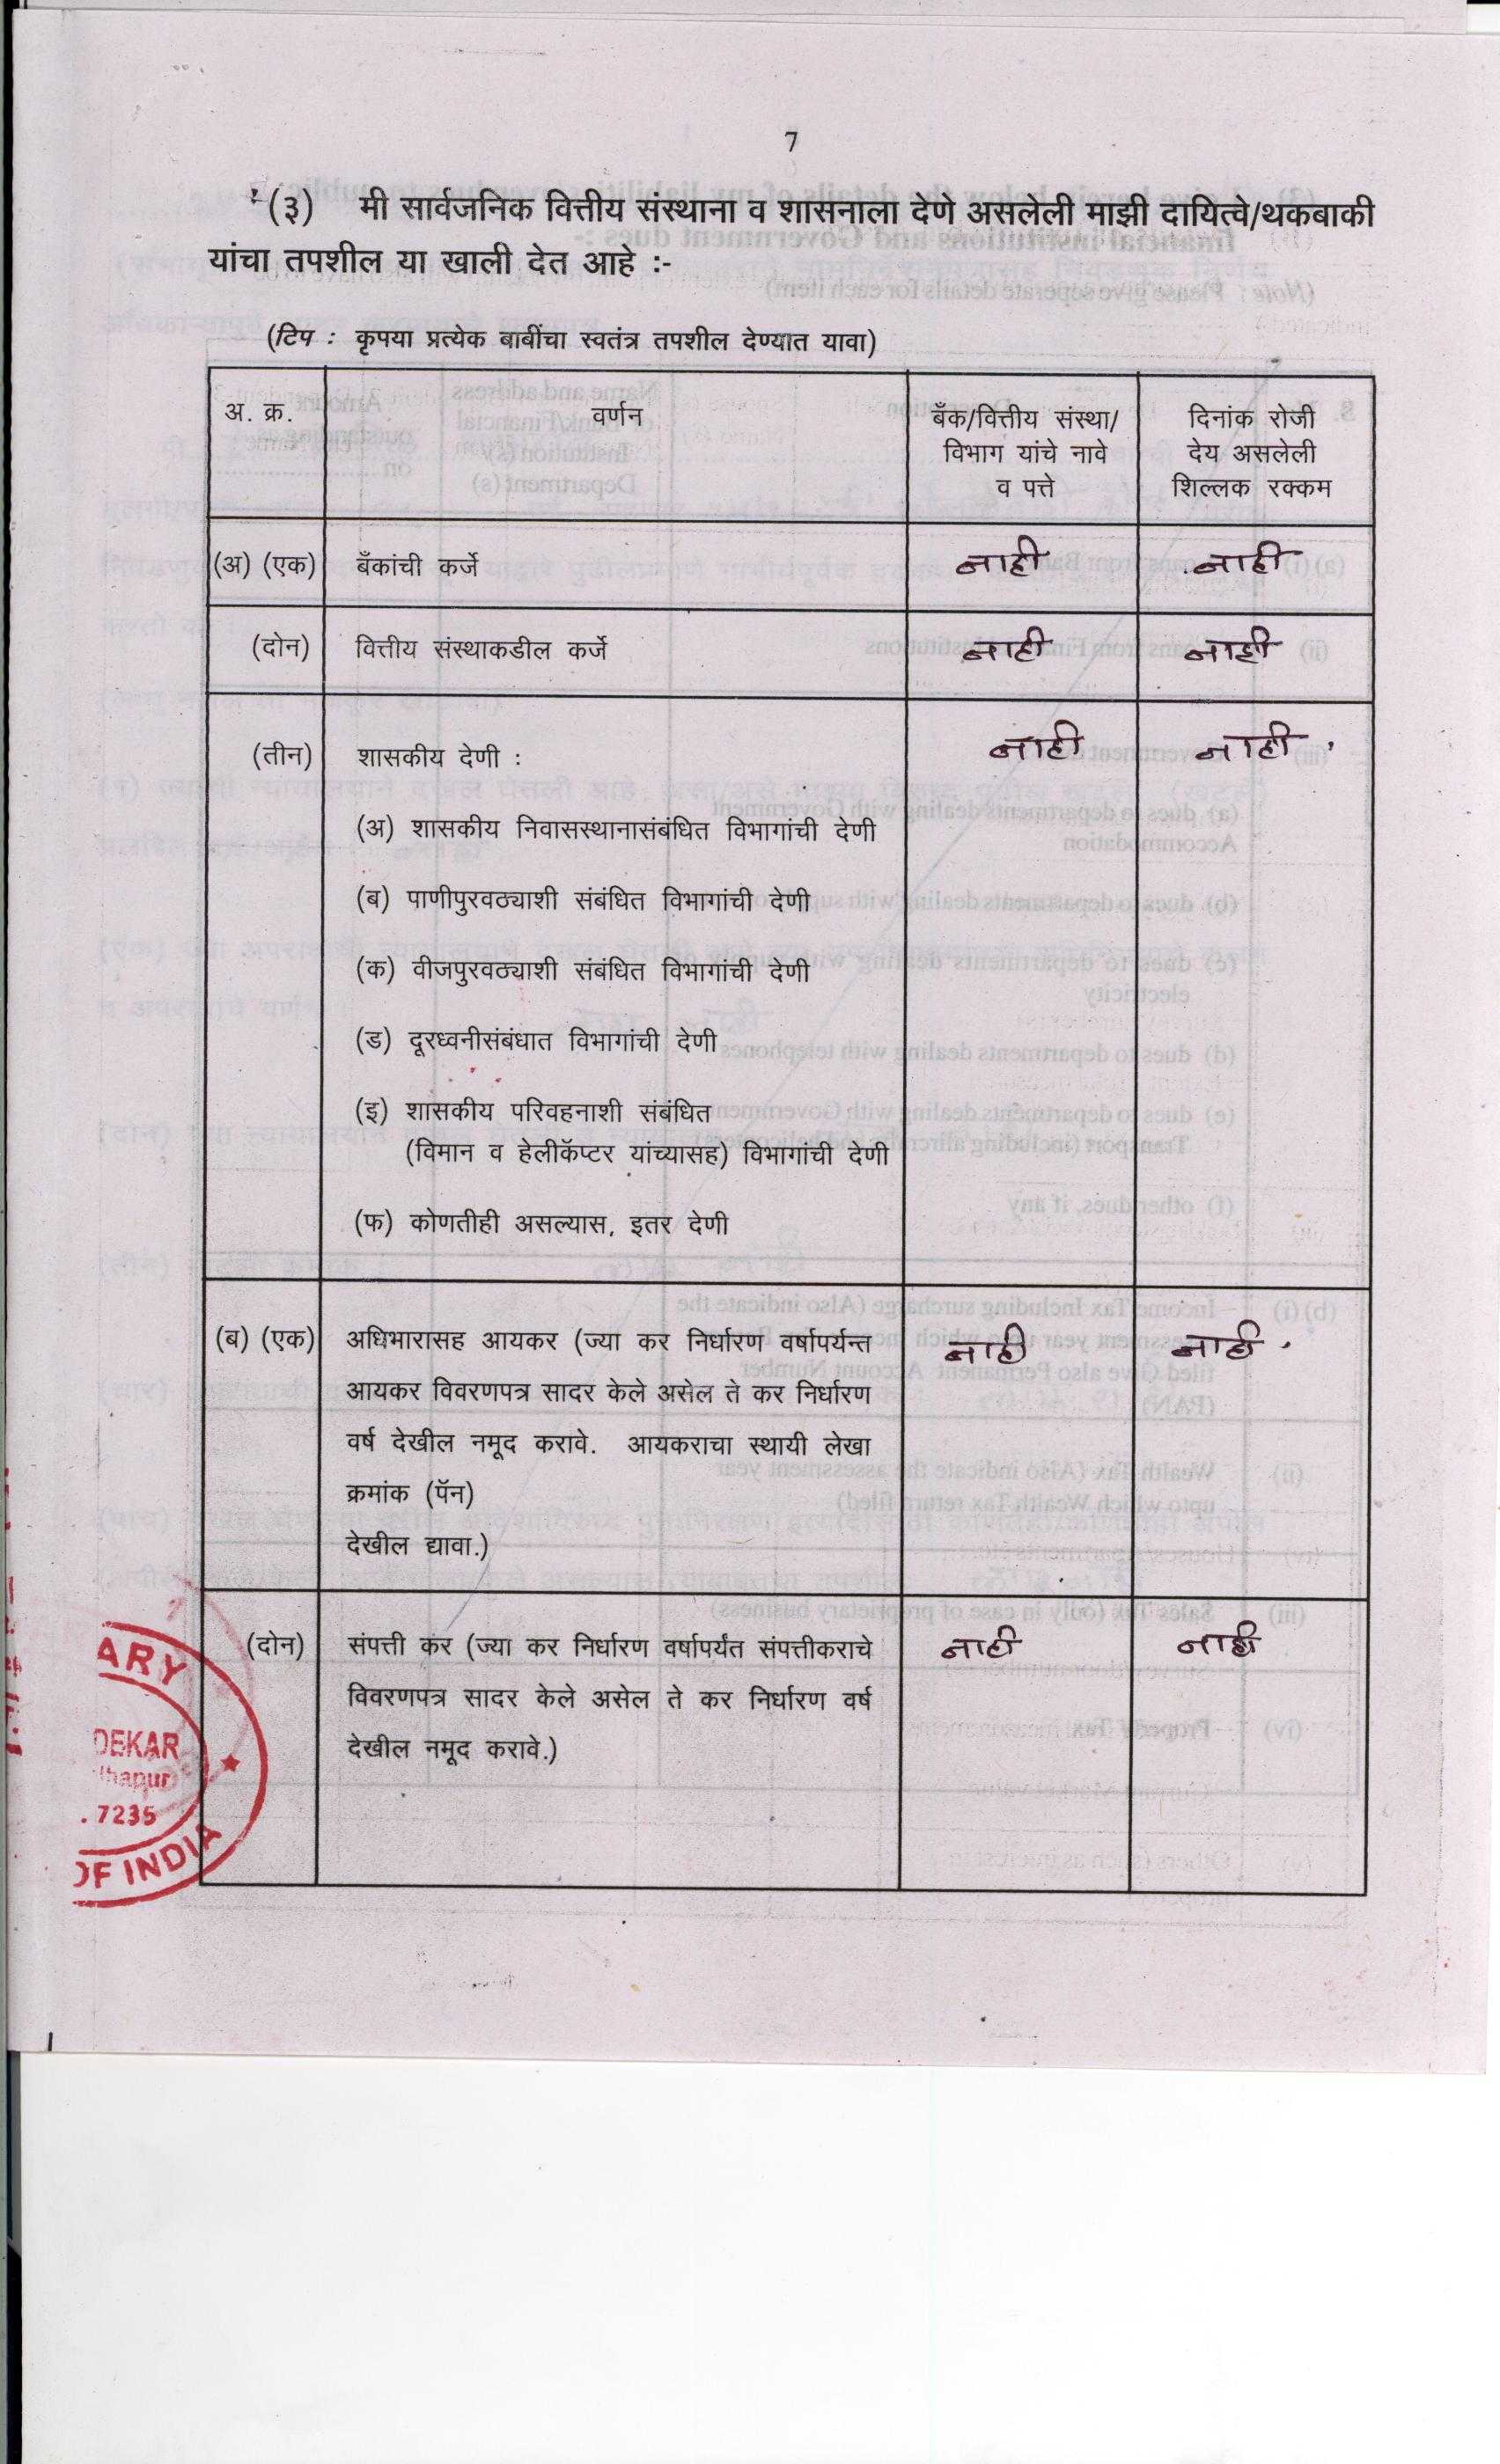 7
(३) मी सार्वजनिक वित्तीय संस्थाना व शासनाला देणे असलेली माझी दायित्वे/थकबाकी
यांचा तपशील या खाली देत आहे :-
(टिप : कृपया प्रत्येक बाबींचा स्वतंत्र तपशील देण्यात यावा)
अ. क्र. वर्णन बँक/वित्तीय संस्था/ दिनांक रोजी
विभाग यांचे नावे देय असलेली
व पत्ते शिल्लक रक्कम
(अ) (एक) बँकांची कर्जे नाही नाही
(दोन) वित्तीय संस्थाकडील कर्जे नाही नाही
(तीन) शासकीय देणी : नाही नाही
(अ) शासकीय निवासस्थानासंबंधित विभागांची देणी
(ब) पाणीपुरवठ्याशी संबंधित विभागांची देणी
(क) वीजपुरवठ्याशी संबंधित विभागांची देणी
(ड) दूरध्वनीसंबंधात विभागांची देणी
(इ) शासकीय परिवहनाशी संबंधित
(विमान व हेलीकॅप्टर यांच्यासह) विभागांची देणी
(फ) कोणतीही असल्यास, इतर देणी
(ब) (एक) अधिभारासह आयकर (ज्या कर निर्धारण वर्षापर्यन्त नाही नाही
आयकर विवरणपत्र सादर केले असेल ते कर निर्धारण
वर्ष देखील नमूद करावे. आयकराचा स्थायी लेखा
क्रमांक (पॅन)
देखील द्यावा.)
(दोन) संपत्ती कर (ज्या कर निर्धारण वर्षापर्यंत संपत्तीकराचे नाही नाही
विवरणपत्र सादर केले असेल ते कर निर्धारण वर्ष
देखील नमूद करावे.)
ARY
DEKAR
lhapur
. 7235
OF INDIA